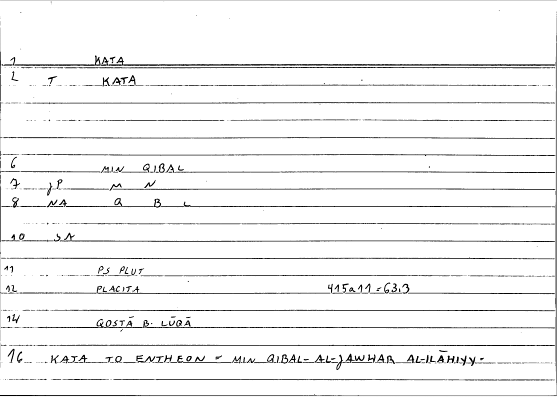 1 KATA
2 T KATA
6 MIN QIBAL
7 JP M N
8 NA Q B L
10 SA
11 PS PLUT
12 PLACITA 415a11 = 63.3
14 QOSṬĀ B. LŪQĀ
16 KATA TO ENTHEON = MIN QIBAL-AL-JAWHAR AL-ILĀHIYY-